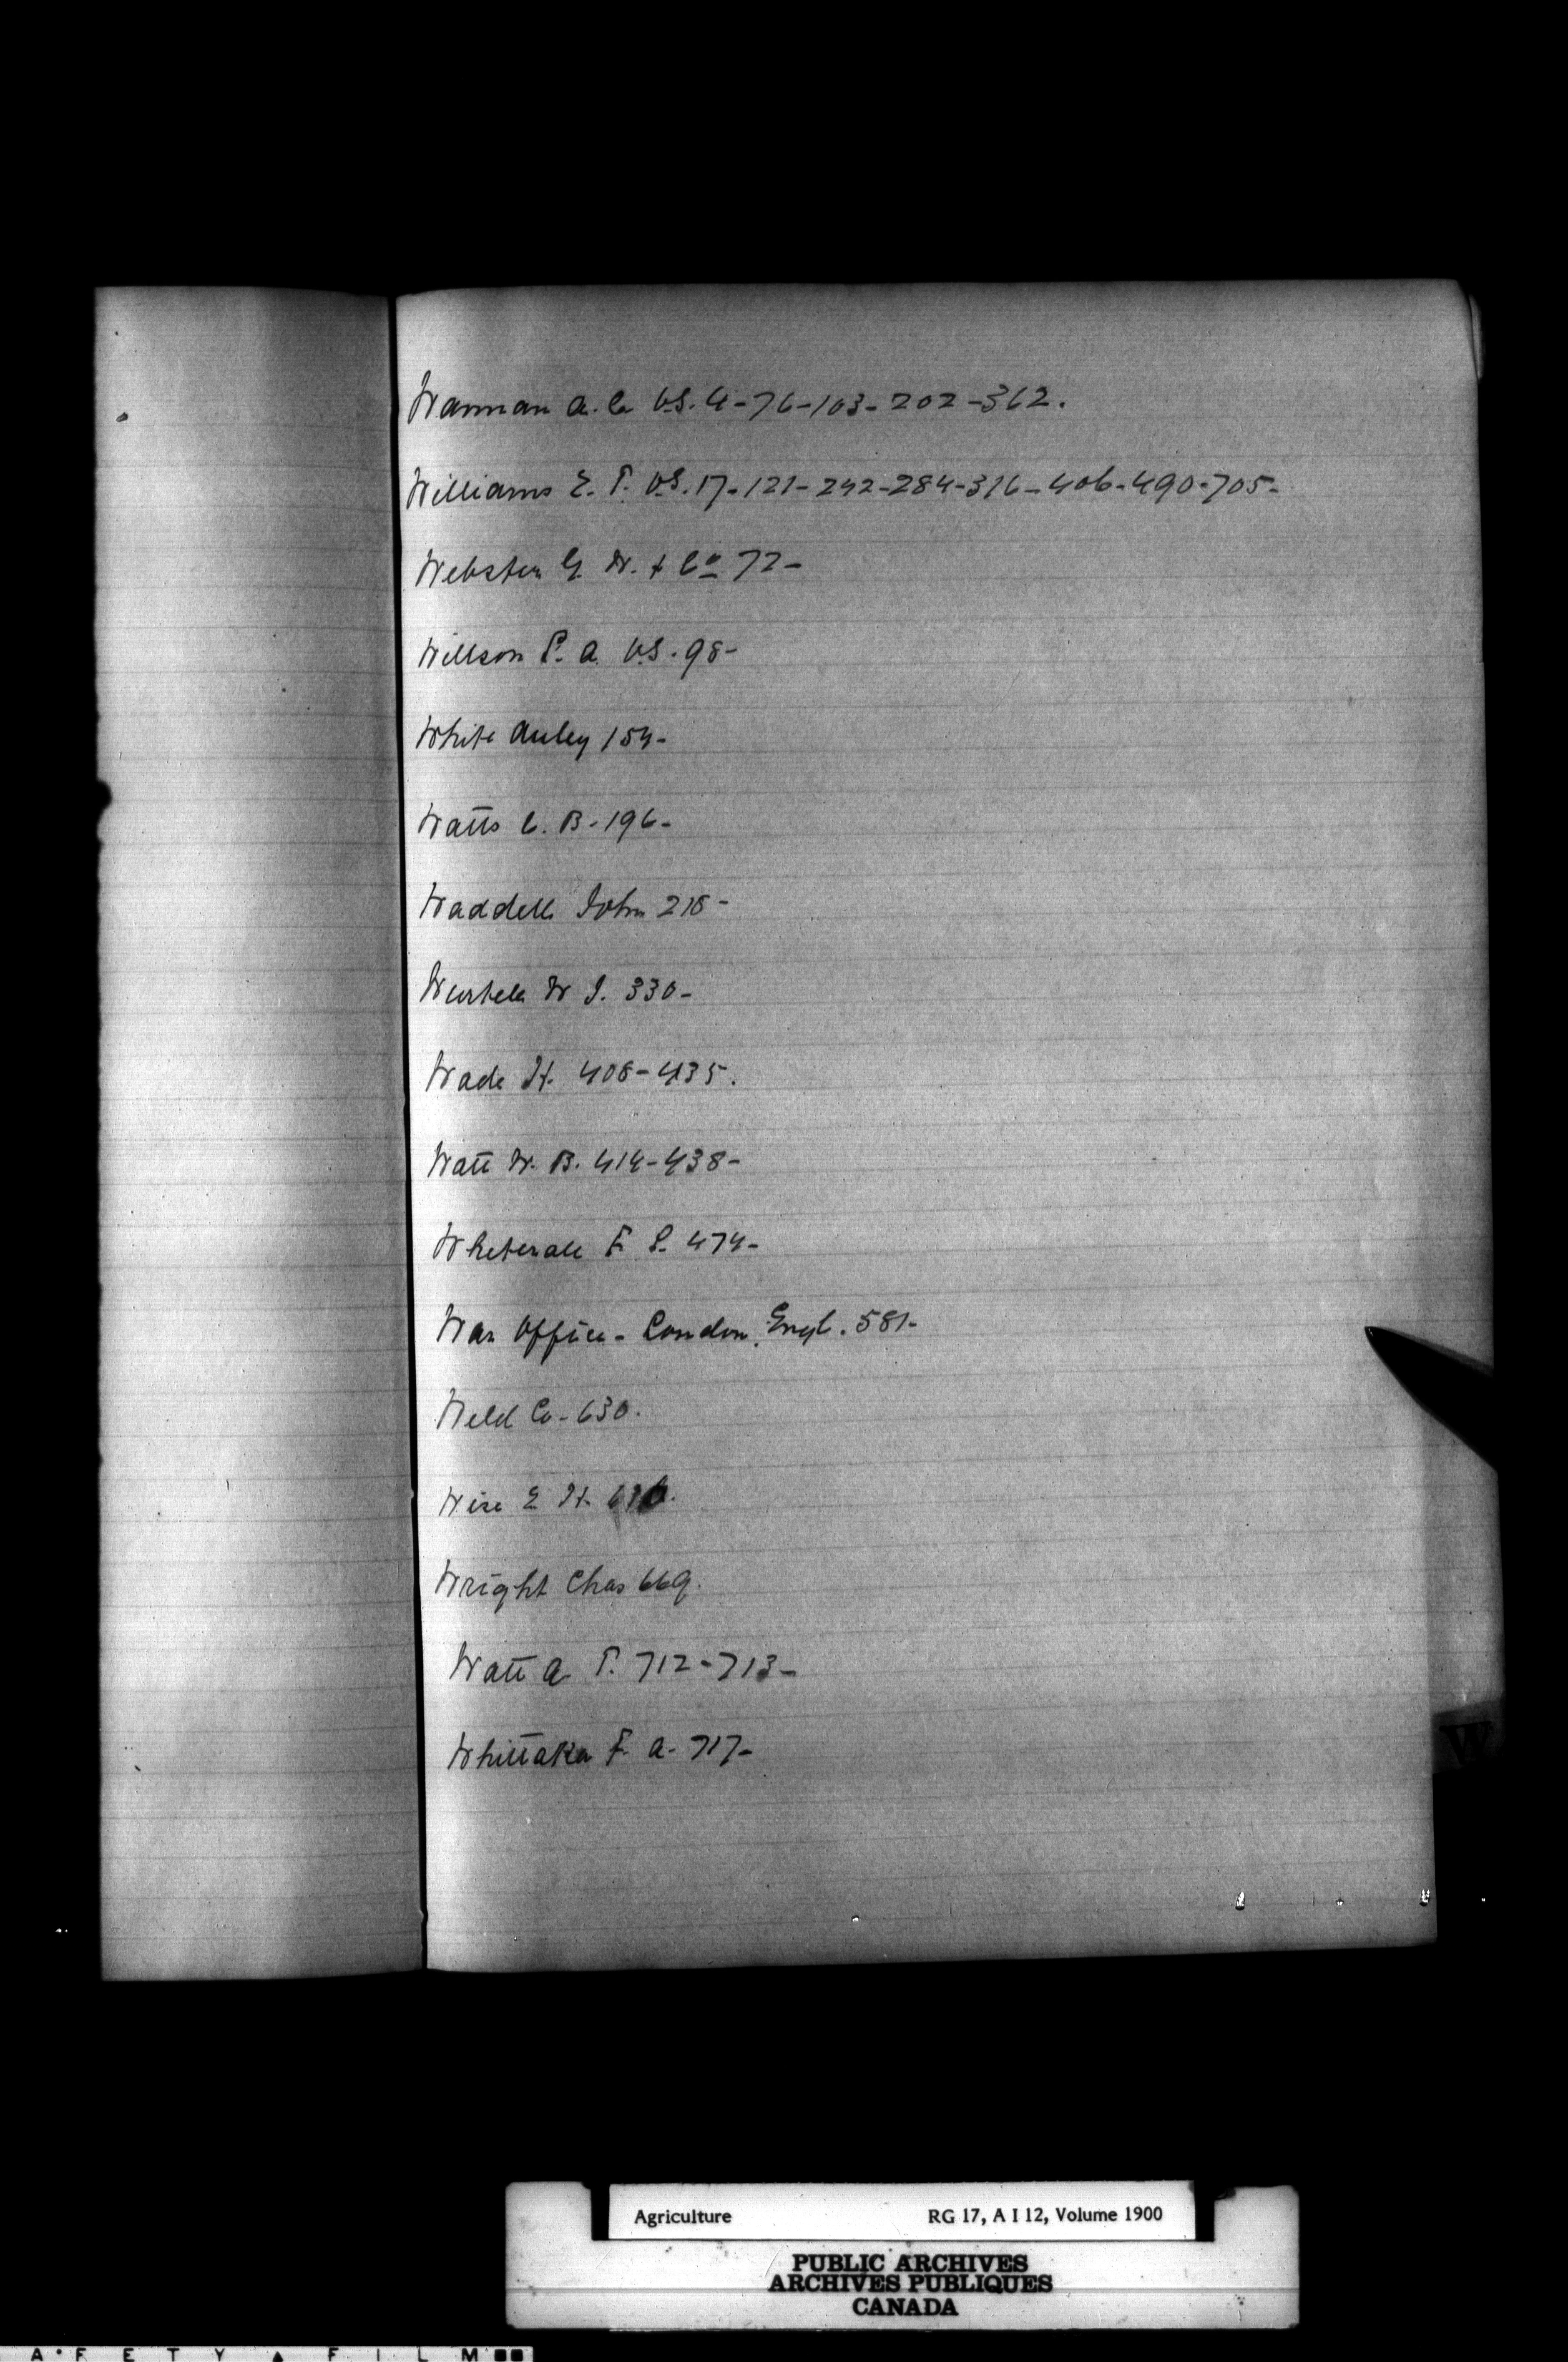 Wanman A. C. V.S. 4-76-103-202-362.
Williams E. P. V.S. 17-121-242-284-316-406-490-705-
Webster G. W. & Co 72-
Willson P. A. V.S. 98-
White Auley 154-
Watts C. B. 196-
Waddell John 218-
Wurtele W J. 330-
Wade H. 408-435.
Watt W. B. 414-438-
F. 474-
War Office - London. Engl. 581-
Weld Co - 630.
Wise E H.
Wright Chas 669.
Watt A T. 712-713-
Whittaker F. A. 717-
W
Agriculture RG 17, A I 12, Volume 1900
PUBLIC ARCHIVES
ARCHIVES PUBLIQUES
CANADA
A F E T Y ▲ F I L M